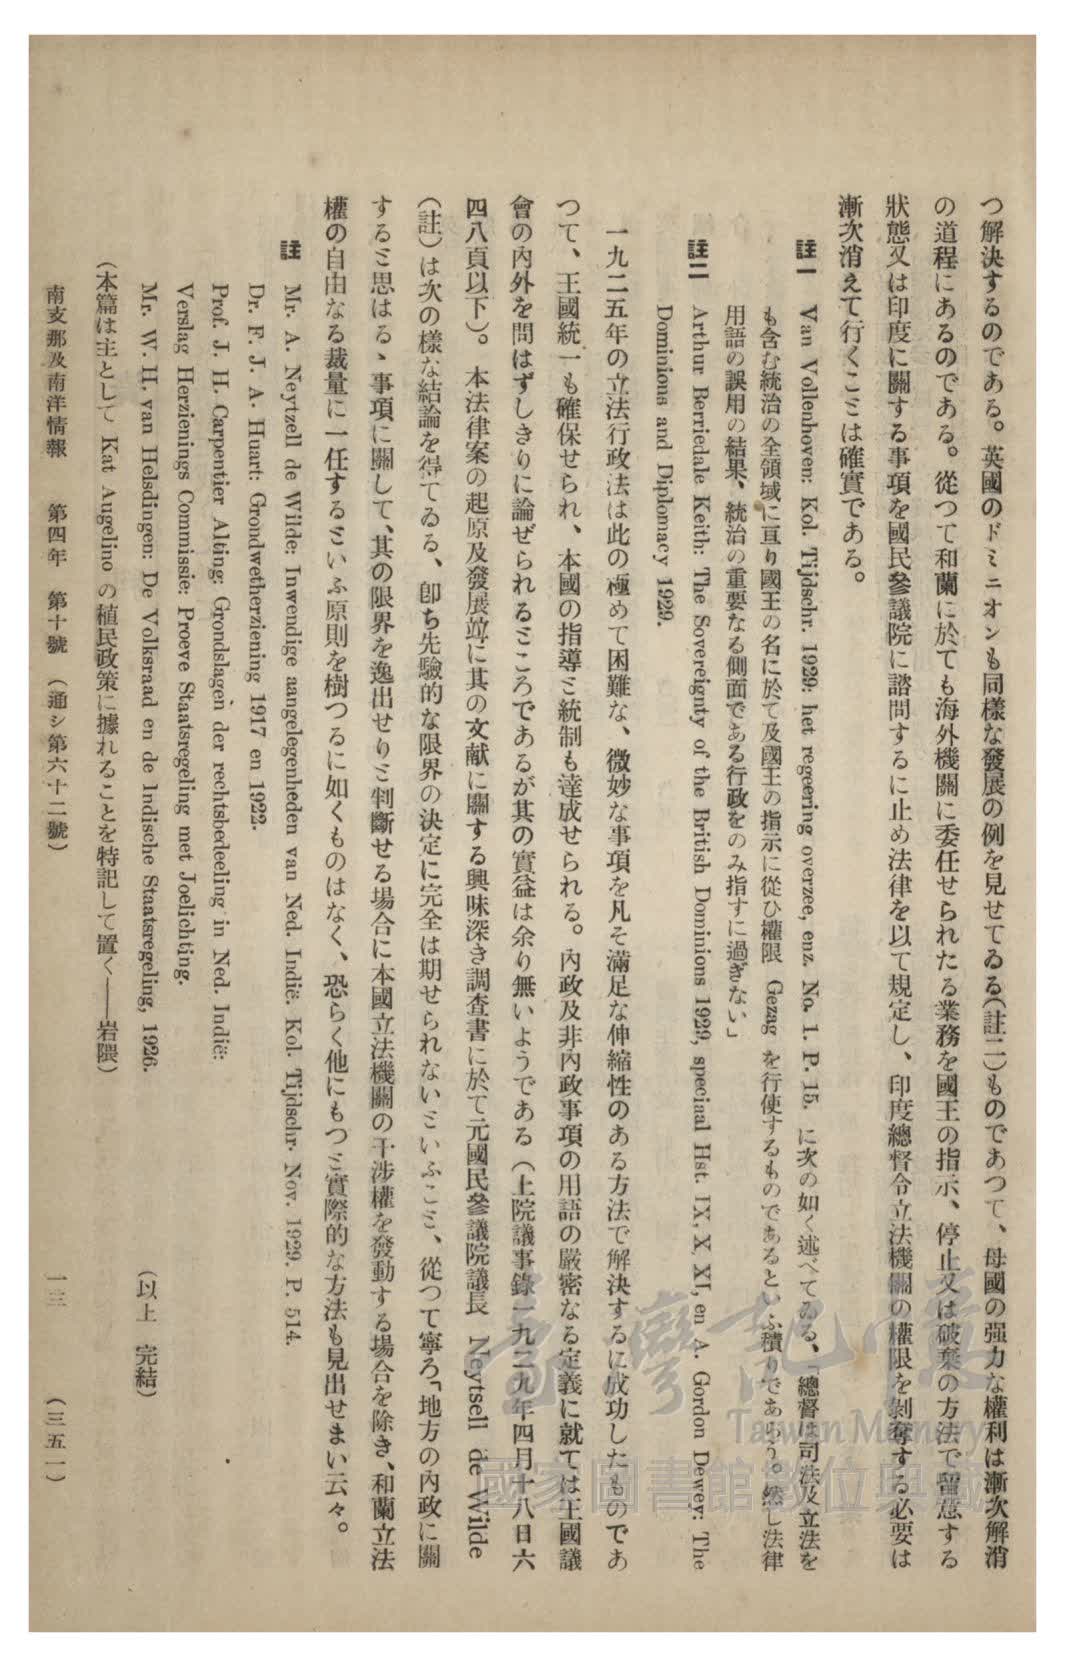 つ解決するのである。英國のドミニオンも同樣な發展の例を見せてゐる(註二)ものであつて、母國の强力な權利は漸次解消
の道程にあるのである。從つて和蘭に於ても海外機關に委任せられたる業務を國王の指示、停止又は破棄の方法で留意する
狀態又は印度に關する事項を國民參議院に諮問するに止め法律を以て規定し、印度總督令立法機關の權限を剝奪する必要は
漸次消えて行くことは確實である。
註一 Van Vollenhoven: Kol. Tijdschr. 1929: het regeering overzee, enz. No. 1. P. 15. に次の如く述べてゐる、「總督は司法及立法を
も含む統治の全領域に亘り國王の名に於て及國王の指示に從ひ權限 Gezag を行使するものであるといふ積りであらう。然し法律
用語の誤用の結果、統治の重要なる側面である行政をのみ指すに過ぎない」
註二 Arthur Berriedale Keith: The Sovereignty of the British Dominions 1929, speciaal Hst. IX, X, XI, en A. Gordon Dewey: The
Dominions and Diplomacy 1929.
一九二五年の立法行政法は此の極めて困難な、微妙な事項を凡そ滿足な伸縮性のある方法で解決するに成功したものであ
つて、王國統一も確保せられ、本國の指導と統制も達成せられる。內政及非內政事項の用語の嚴密なる定義に就ては王國議
會の內外を問はずしきりに論ぜられるところであるが其の實益は余り無いようである(上院議事錄一九二九年四月十八日六
四八頁以下)。本法律案の起原及發展竝に其の文献に關する興味深き調査書に於て元國民參議院議長 Neytsell de Wilde
(註)は次の樣な結論を得てゐる、卽ち先驗的な限界の決定に完全は期せられないといふこと、從つて寧ろ「地方の內政に關
すると思はるゝ事項に關して、其の限界を逸出せりと判斷せる場合に本國立法機關の干涉權を發動する場合を除き、和蘭立法
權の自由なる裁量に一任するといふ原則を樹つるに如くものはなく、恐らく他にもつと實際的な方法も見出せまい云々。
註 Mr. A. Neytzell de Wilde: Inwendige aangelegenheden van Ned. Indië. Kol. Tijdschr. Nov. 1929. P. 514.
Dr. F. J. A. Huart: Grondwetherziening 1917 en 1922.
Prof. J. H. Carpentier Alting: Grondslagen der rechtsbedeeling in Ned. Indië:
Verslag Herzienings Commissie: Proeve Staatsregeling met Joelichting.
Mr. W. H. van Helsdingen: De Volksraad en de Indische Staatsregeling, 1926.
(以上 完結)
(本篇は主として Kat Augelino の植民政策に據れることを特記して置く——岩隈)
南支那及南洋情報 第四年 第十號 (通シ第六十二號) 一三 (三五一)
臺灣記憶
Taiwan Memory
國家圖書館數位典藏